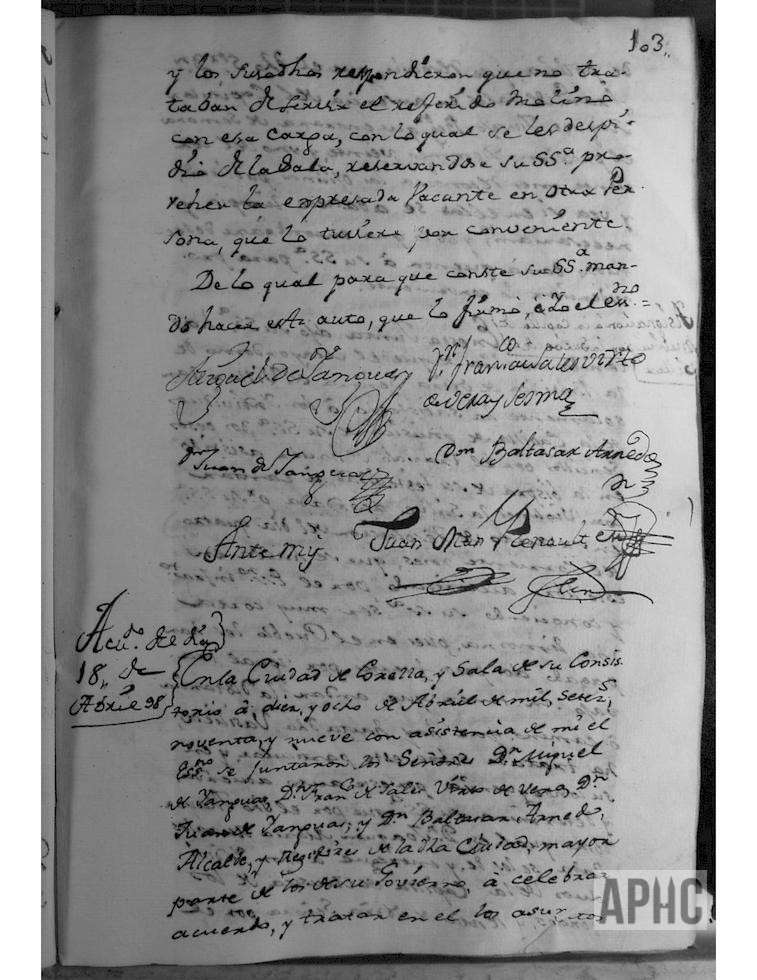 103,,
y los susodhos respondieron que no tra-
taban de servir el referido Molino
con esa Carga, con lo qual se les despi-
dió de la Sala, reservandose su SSª pro-
veher la expresada Vacante en otra Per-
sona, que lo tuviere por conveniente.
De lo qual para que conste su SSª man-
dó hacer este auto, que lo firmó, è Yo el essno=
Miguel de Tanguas y Dn Franco Sales Virto
de Vera y Sesma
Juan de Tanguas
Don Baltasar Arnedo
Ante my Juan Man Renault
Acudo. del día
18,, de
Abril 98
En la Ciudad de Corella, y Sala de su Consis-
torio à, diez, y ocho de Abril de mil, Setezs
noventa, y nueve con asistencia de mi el
Essno se juntaron los Señores Dn Miguel
de Tanguas, Dn Franco de Sales Virto de Vera, Dn
Juan de Tanguas, y Dn Baltasar Arnedo,
Alcalde, y Regidores de la dha Ciudad, mayor
parte de los de su Govierno, à celebrar
acuerdo, y tratar en el los asuntos
APHC